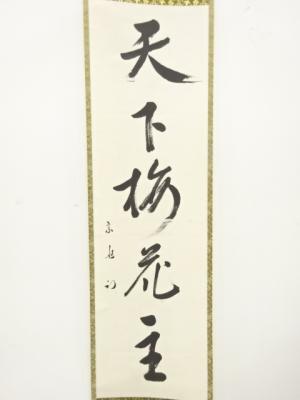 天下梅花主